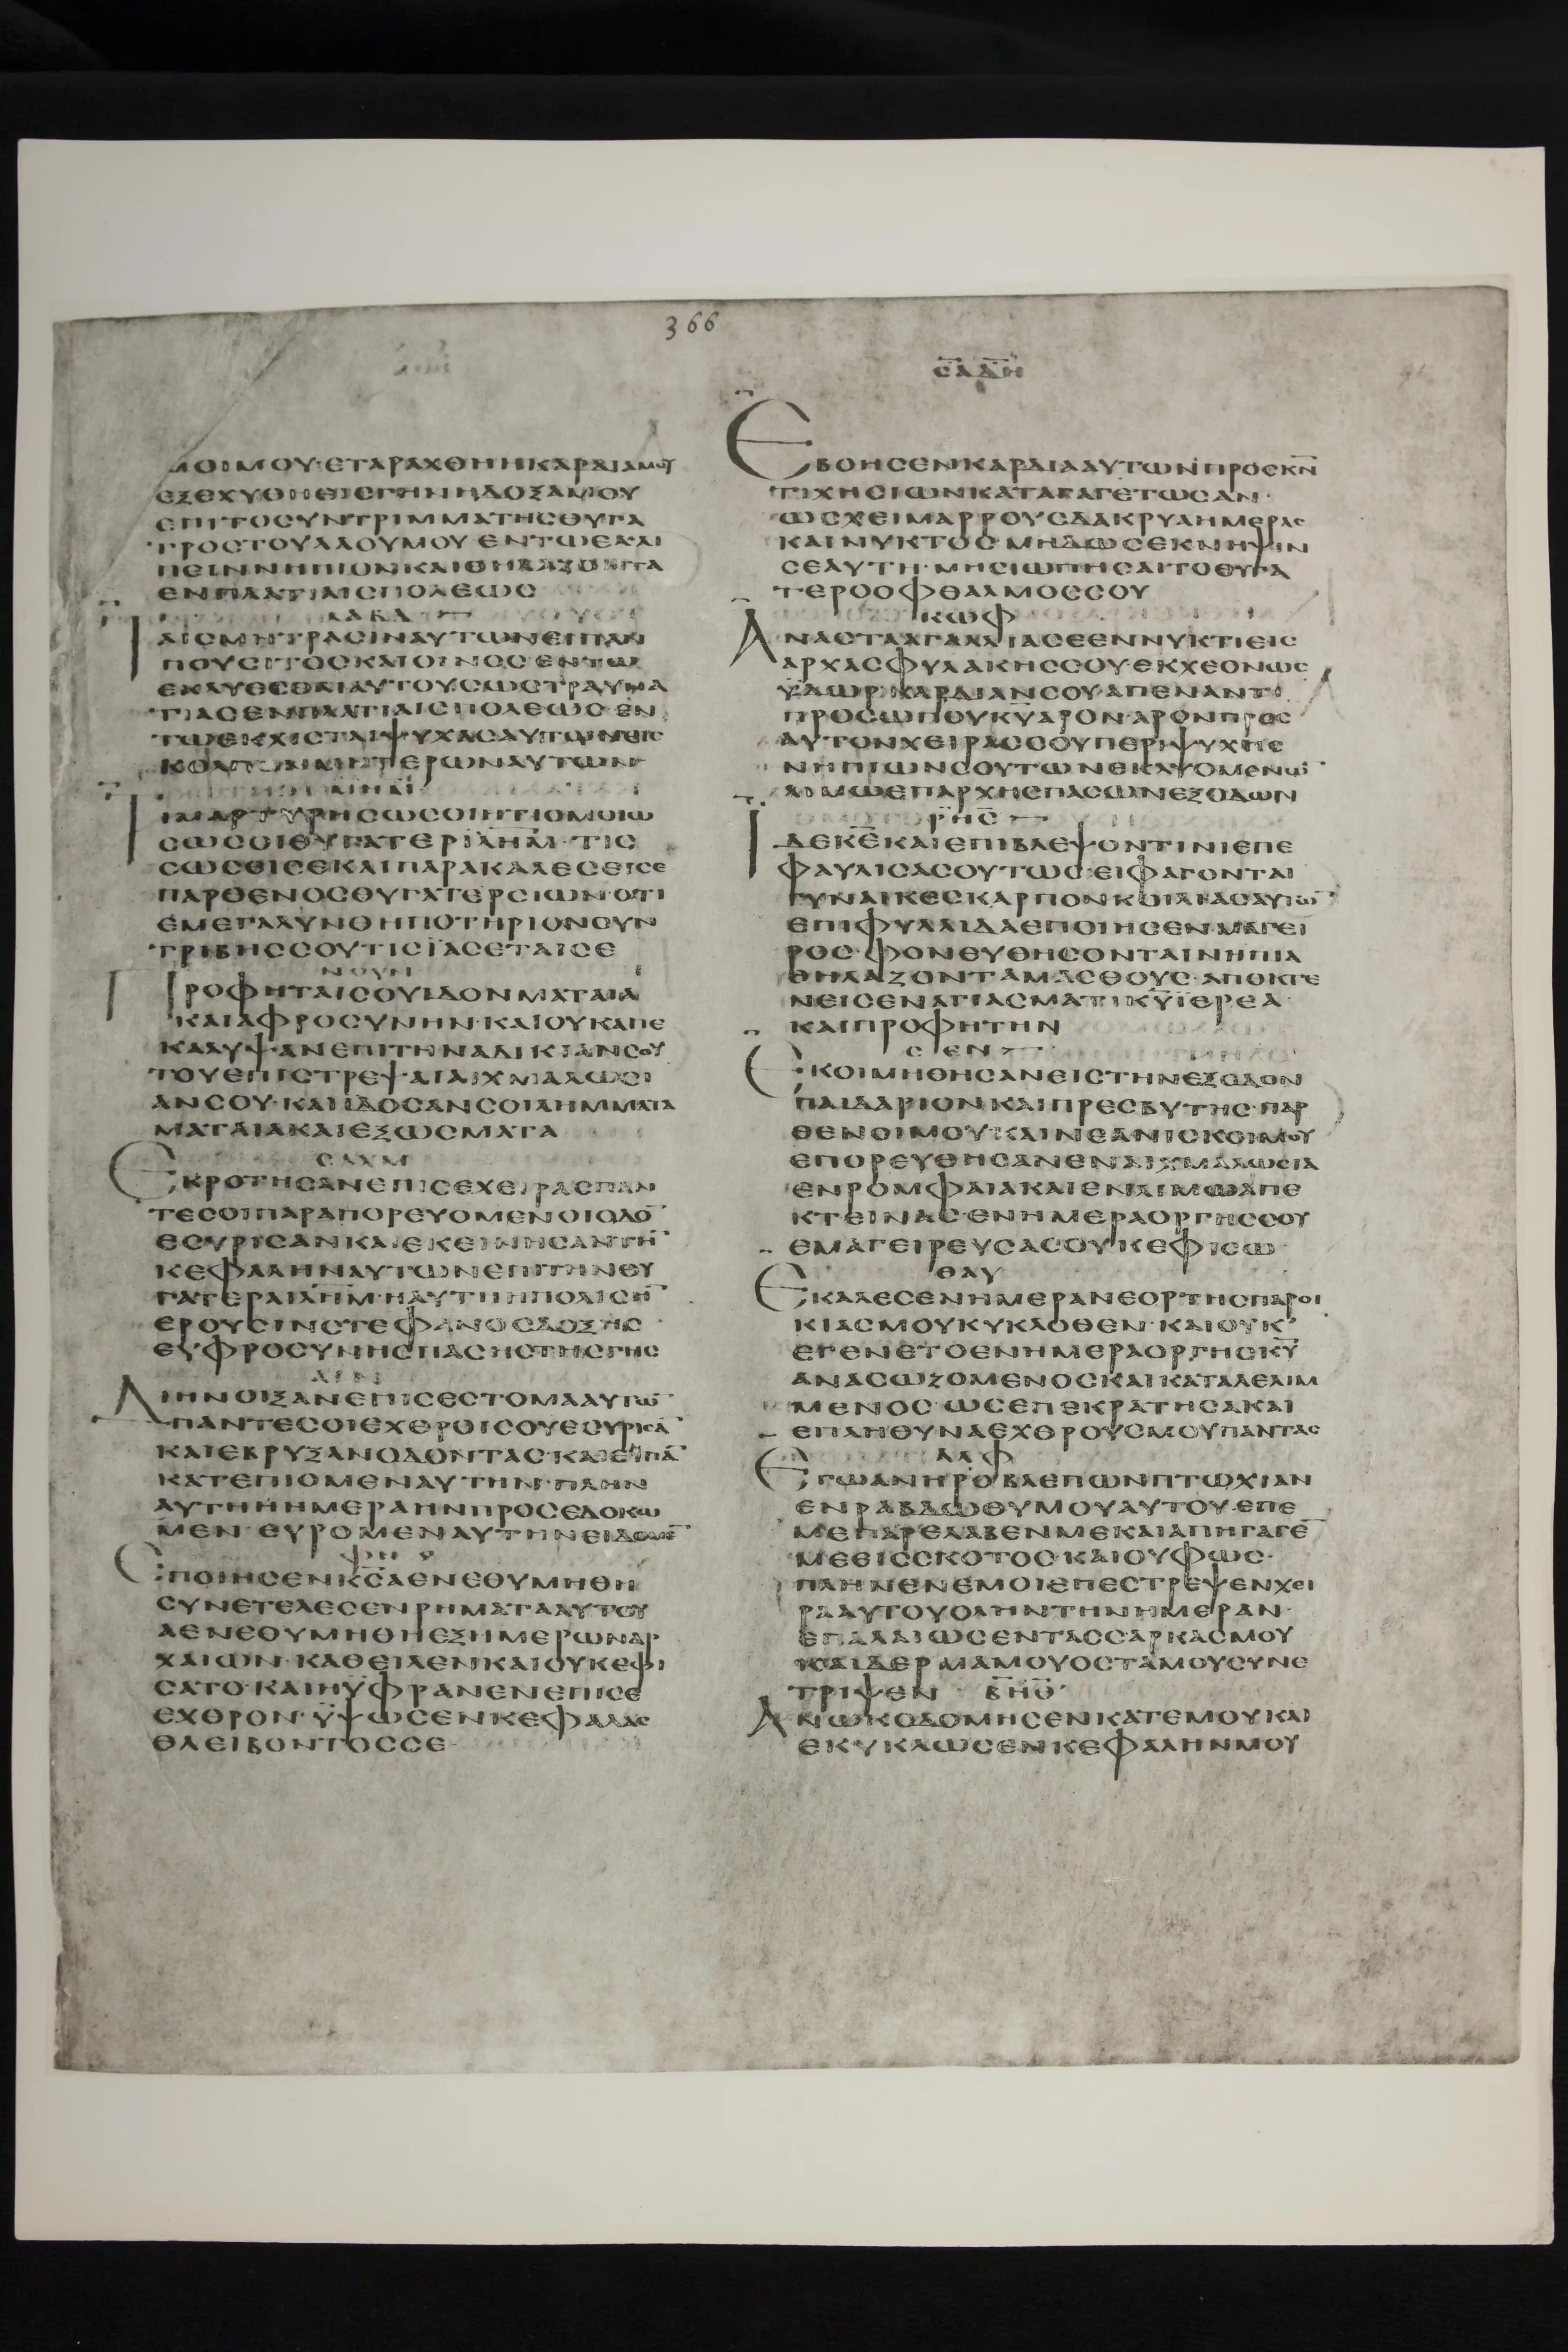 366
ΜΟΙΜΟΥ·ΕΤΑΡΑΧΘΗΗΚΑΡΔΙΑΜΟΥ
ΕΞΕΧΥΘΗΕΙΣΓΗΝΗΔΟΞΑΜΟΥ
ΕΠΙΤΟΣΥΝΤΡΙΜΜΑΤΗΣΘΥΓΑ
ΤΡΟΣΤΟΥΛΑΟΥΜΟΥ·ΕΝΤΩΕΚΛΙ
ΠΕΙΝΝΗΠΙΟΝΚΑΙΘΗΛΑΖΟΝΤΑ
ΕΝΠΛΑΤΙΑΙΣΠΟΛΕΩΣ
ΛΑΒΔ
ΤΑΙΣΜΗΤΡΑΣΙΝΑΥΤΩΝΕΙΠΑΝ
ΠΟΥΣΙΤΟΣΚΑΙΟΙΝΟΣ·ΕΝΤΩ
ΕΚΛΥΕΣΘΑΙΑΥΤΟΥΣΩΣΤΡΑΥΜΑ
ΤΙΑΣΕΝΠΛΑΤΙΑΙΣΠΟΛΕΩΣ·ΕΝ
ΤΩΕΚΧΙΣΤΑΙΨΥΧΑΣΑΥΤΩΝΕΙΣ
ΚΟΛΠΟΝΜΗΤΕΡΩΝΑΥΤΩΝ
ΤΙΜΑΡΤΥΡΗΣΩΣΟΙΗΤΙΟΜΟΙΩ
ΣΩΣΟΙΘΥΓΑΤΕΡΙΛΗΜ·ΤΙΣ
ΣΩΣΕΙΣΕΚΑΙΠΑΡΑΚΑΛΕΣΕΙΣΕ
ΠΑΡΘΕΝΟΣΘΥΓΑΤΕΡΣΙΩΝ·ΟΤΙ
ΕΜΕΓΑΛΥΝΘΗΠΟΤΗΡΙΟΝΣΥΝ
ΤΡΙΒΗΣΣΟΥΤΙΣΪΑΣΕΤΑΙΣΕ
ΝΟΥΝ
ΠΡΟΦΗΤΑΙΣΟΥΙΔΟΝΜΑΤΑΙΑ
ΚΑΙΑΦΡΟΣΥΝΗΝ·ΚΑΙΟΥΚΑΠΕ
ΚΑΛΥΨΑΝΕΠΙΤΗΝΑΔΙΚΙΑΝΣΟΥ
ΤΟΥΕΠΙΣΤΡΕΨΑΙΑΙΧΜΑΛΩΣΙ
ΑΝΣΟΥ·ΚΑΙΙΔΟΣΑΝΣΟΙΛΗΜΜΑΤΑ
ΜΑΤΑΙΑΚΑΙΕΞΩΣΜΑΤΑ
ΣΑΧΜ
ΕΚΡΟΤΗΣΑΝΕΠΙΣΕΧΕΙΡΑΣΠΑΝ
ΤΕΣΟΙΠΑΡΑΠΟΡΕΥΟΜΕΝΟΙΟΔΟ̅
ΕΣΥΡΙΣΑΝΚΑΙΕΚΕΙΝΗΣΑΝΤΗ̅
ΚΕΦΑΛΗΝΑΥΤΩΝΕΠΙΤΗΝΘΥ
ΓΑΤΕΡΑΙΛΗΜ·ΗΑΥΤΗΗΠΟΛΙΣΗ̅
ΕΡΟΥΣΙΝΣΤΕΦΑΝΟΣΔΟΞΗΣ
ΕΥΦΡΟΣΥΝΗΣΠΑΣΗΣΤΗΣΓΗΣ
ΑΙΝ
ΔΙΗΝΟΙΞΑΝΕΠΙΣΕΣΤΟΜΑΑΥΤΩ̅
ΠΑΝΤΕΣΟΙΕΧΘΡΟΙΣΟΥΕΣΥΡΙΣΑ̅
ΚΑΙΕΒΡΥΞΑΝΟΔΟΝΤΑΣ·ΚΑΙΕΙΠΑ̅
ΚΑΤΕΠΙΟΜΕΝΑΥΤΗΝ·ΠΛΗΝ
ΑΥΤΗΗΗΜΕΡΑΗΝΠΡΟΣΕΔΟΚΩ
ΜΕΝ·ΕΥΡΟΜΕΝΑΥΤΗΝΕΙΔΟΜΕ̅
ΕΠΟΙΗΣΕΝΚ̅Σ̅ΑΕΝΕΘΥΜΗΘΗ
ΣΥΝΕΤΕΛΕΣΕΝΡΗΜΑΤΑΑΥΤΟΥ
ΑΕΝΕΘΥΜΗΘΗΕΞΗΜΕΡΩΝΑΡ
ΧΑΙΩΝ·ΚΑΘΕΙΛΕΝΚΑΙΟΥΚΕΦΙ
ΣΑΤΟ·ΚΑΙΗΥΦΡΑΝΕΝΕΠΙΣΕ
ΕΧΘΡΟΝ·ΫΨΩΣΕΝΚΕΦΑΛΑΣ
ΘΛΕΙΒΟΝΤΟΣΣΕ
ΣΑΔΗ
ΕΒΟΗΣΕΝΚΑΡΔΙΑΑΥΤΩΝΠΡΟΣΚ̅Ν̅
ΤΙΧΗΣΙΩΝΚΑΤΑΓΑΓΕΤΩΣΑΝ·
ΩΣΧΕΙΜΑΡΡΟΥΣΔΑΚΡΥΑΗΜΕΡΑΣ
ΚΑΙΝΥΚΤΟΣ·ΜΗΔΩΣΕΚΝΗΨΙΝ
ΣΕΑΥΤΗ·ΜΗΣΙΩΠΗΣΑΙΤΟΘΥΓΑ
ΤΕΡΟΟΦΘΑΛΜΟΣΣΟΥ
ΚΩΦ
ΑΝΑΣΤΑΑΓΑΛΛΙΑΣΕΕΝΝΥΚΤΙΕΙΣ
ΑΡΧΑΣΦΥΛΑΚΗΣΣΟΥ·ΕΚΧΕΟΝΩΣ
ΫΔΩΡΚΑΡΔΙΑΝΣΟΥΑΠΕΝΑΝΤΙ
ΠΡΟΣΩΠΟΥΚ̅Υ̅ΑΡΟΝΑΡΟΝΠΡΟΣ
ΑΥΤΟΝΧΕΙΡΑΣΣΟΥΠΕΡΙΨΥΧΗΣ
ΝΗΠΙΩΝΣΟΥΤΩΝΕΚΛΥΟΜΕΝΩ̅
ΛΙΜΩΕΠΑΡΧΗΣΠΑΣΩΝΕΞΟΔΩΝ
ΡΗΣ
ΙΔΕΚ̅Ε̅ΚΑΙΕΠΙΒΛΕΨΟΝΤΙΝΙΕΠΕ
ΦΑΥΛΙΣΑΣΟΥΤΩΣ·ΕΙΦΑΓΟΝΤΑΙ
ΓΥΝΑΙΚΕΣΚΑΡΠΟΝΚΟΙΛΙΑΣΑΥΤΩ̅
ΕΠΙΦΥΛΛΙΔΑΕΠΟΙΗΣΕΝΜΑΓΕΙ
ΡΟΣ·ΦΟΝΕΥΘΗΣΟΝΤΑΙΝΗΠΙΑ
ΘΗΛΑΖΟΝΤΑΜΑΣΘΟΥΣ·ΑΠΟΚΤΕ
ΝΕΙΣΕΝΑΓΙΑΣΜΑΤΙΚ̅Υ̅ΪΕΡΕΑ
ΚΑΙΠΡΟΦΗΤΗΝ
ΣΕΝ
ΕΚΟΙΜΗΘΗΣΑΝΕΙΣΤΗΝΕΞΟΔΟΝ
ΠΑΙΔΑΡΙΟΝΚΑΙΠΡΕΣΒΥΤΗΣ·ΠΑΡ
ΘΕΝΟΙΜΟΥ·ΚΑΙΝΕΑΝΙΣΚΟΙΜΟΥ
ΕΠΟΡΕΥΘΗΣΑΝΕΝΑΙΧΜΑΛΩΣΙΑ
ΕΝΡΟΜΦΑΙΑΚΑΙΕΝΛΙΜΩΑΠΕ
ΚΤΕΙΝΑΣ·ΕΝΗΜΕΡΑΟΡΓΗΣΣΟΥ
ΕΜΑΓΕΙΡΕΥΣΑΣΟΥΚΕΦΙΣΩ
ΘΑΥ
ΕΚΑΛΕΣΕΝΗΜΕΡΑΝΕΟΡΤΗΣΠΑΡΟΙ
ΚΙΑΣΜΟΥΚΥΚΛΟΘΕΝ·ΚΑΙΟΥΚ
ΕΓΕΝΕΤΟΕΝΗΜΕΡΑΟΡΓΗΣΚ̅Υ̅
ΑΝΑΣΩΖΟΜΕΝΟΣΚΑΙΚΑΤΑΛΕΛΙΜ
ΜΕΝΟΣ·ΩΣΕΠΕΚΡΑΤΗΣΑΚΑΙ
ΕΠΛΗΘΥΝΑΕΧΘΡΟΥΣΜΟΥΠΑΝΤΑΣ
ΑΛΦ
ΕΓΩΑΝΗΡΟΒΛΕΠΩΝΠΤΩΧΙΑΝ
ΕΝΡΑΒΔΩΘΥΜΟΥΑΥΤΟΥ·ΕΠΕ
ΜΕΠΑΡΕΛΑΒΕΝΜΕΚΑΙΑΠΗΓΑΓΕ̅
ΜΕΕΙΣΣΚΟΤΟΣ·ΚΑΙΟΥΦΩΣ·
ΠΛΗΝΕΝΕΜΟΙΕΠΕΣΤΡΕΨΕΝΧΕΙ
ΡΑΑΥΤΟΥΟΛΗΝΤΗΝΗΜΕΡΑΝ·
ΕΠΑΛΑΙΩΣΕΝΤΑΣΣΑΡΚΑΣΜΟΥ
ΚΑΙΔΕΡΜΑΜΟΥΟΣΤΑΜΟΥΣΥΝΕ
ΤΡΙΨΕΝ ΒΗΘ
ΑΝΩΚΟΔΟΜΗΣΕΝΚΑΤΕΜΟΥΚΑΙ
ΕΚΥΚΛΩΣΕΝΚΕΦΑΛΗΝΜΟΥ